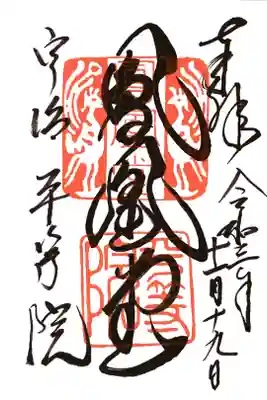 奉拝 令和三年
十一月十九日
鳳凰堂
宇治 平等院